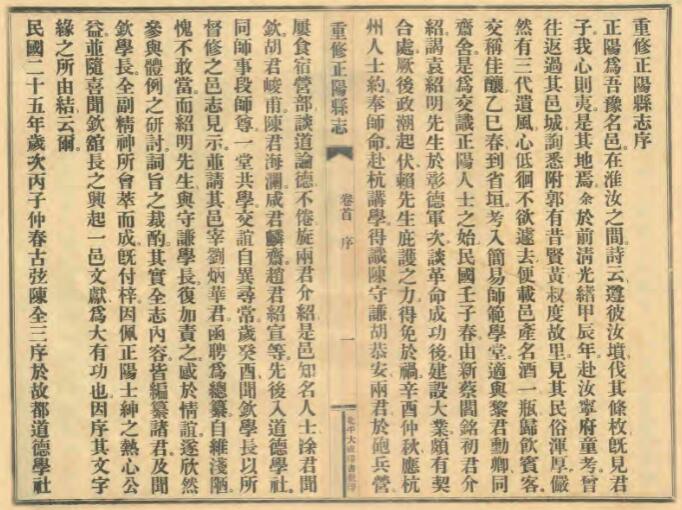 重修正陽縣志序
正陽爲吾豫名邑。在淮汝之間。詩云。遵彼汝墳。伐其條枚。旣見君
子。我心則夷。是其地焉。余於前淸光緒甲辰年。赴汝寧府童考。曾
往返過其邑城。詢悉附郭有昔賢黃叔度故里。見其民俗渾厚。儼
然有三代遺風。心低徊不欲遽去。便載邑產名酒一瓶歸飮賓客。
交稱佳釀。乙巳春。到省垣。考入簡易師範學堂。適與黎君勳卿同
齋舍。是爲交識正陽人士之始。民國壬子春。由新蔡閻銘初君介
紹。謁袁紹明先生於彰德軍次。談革命成功後建設大業。頗有契
合處。厥後政潮起伏。賴先生庇護之力。得免於禍。辛酉仲秋。應杭
州人士約。奉師命。赴杭講學。得識陳守謙胡恭安兩君於砲兵營。
重修正陽縣志
卷首 序
一
屢食宿營部。談道論德不倦。旋兩君介紹是邑知名人士涂君聞
欽。胡君峻甫。陳君海瀾。咸君麟齋。趙君紹宣等。先後入道德學社。
同師事段師尊。一堂共學。交誼自異尋常。歲癸酉。聞欽學長以所
督修之邑志見示。並請其邑宰劉炳華君。函聘爲總纂。自維淺陋。
愧不敢當。而紹明先生與守謙學長。復加責之。感於情誼。遂欣然
參與體例之硏討。詞旨之裁酌。其實全志內容。皆編纂諸君。及聞
欽學長。全副精神所會萃而成。旣付梓。因佩正陽士紳之熱心公
益。並隨喜聞欽館長之興起一邑文獻。爲大有功也。因序其文字
緣之所由結云爾。
民國二十五年歲次丙子仲春古弦陳全三序於故都道德學社